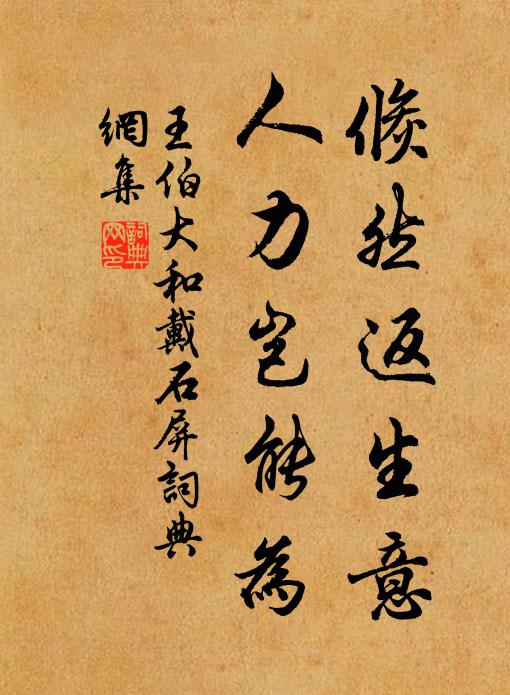 倐然返生意
人力豈能為
王伯大和戴石屏詞典
網集
詞典
网印